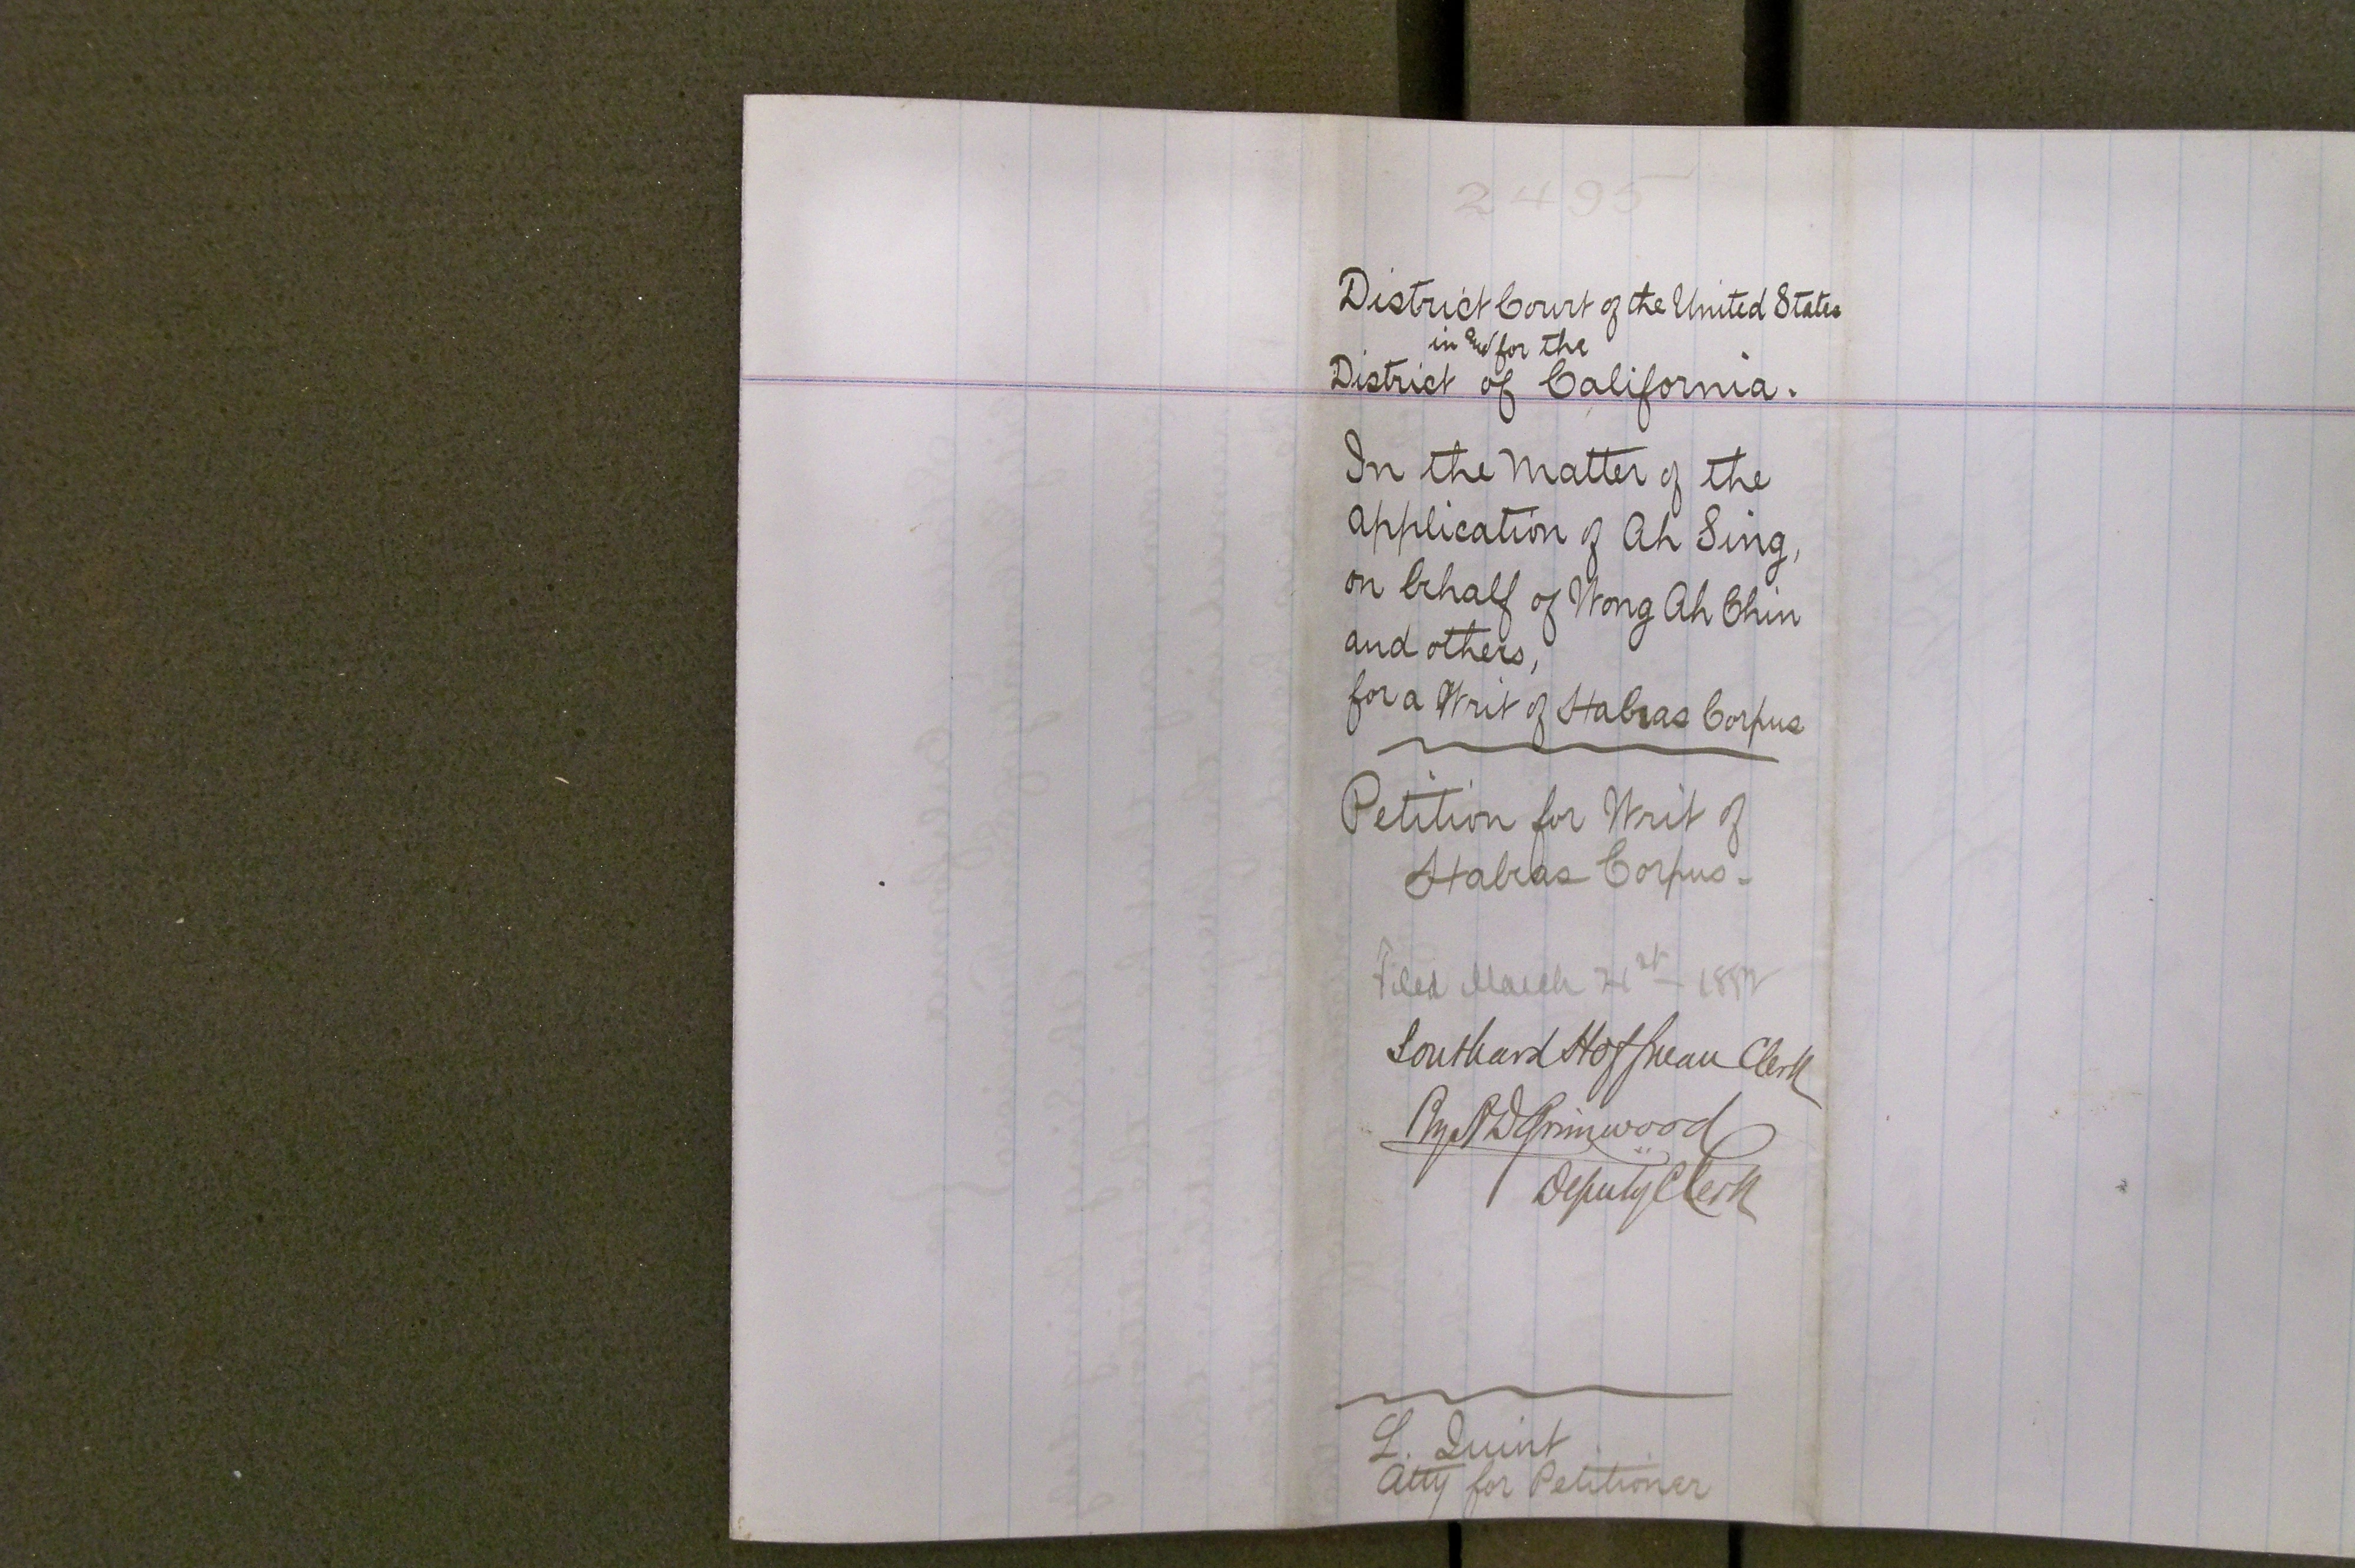 2495
District Court of the United States
in and for the
District of California.
In the Matter of the
application of Ah Sing,
on behalf of Wong Ah Chin
and others,
for a Writ of Habeas Corpus
Petition for Writ of
Habeas Corpus.
Filed March 21st 1882
Southard Hoffman Clerk
By R D Grimwood
Deputy Clerk
L. Quint
Atty for Petitioner